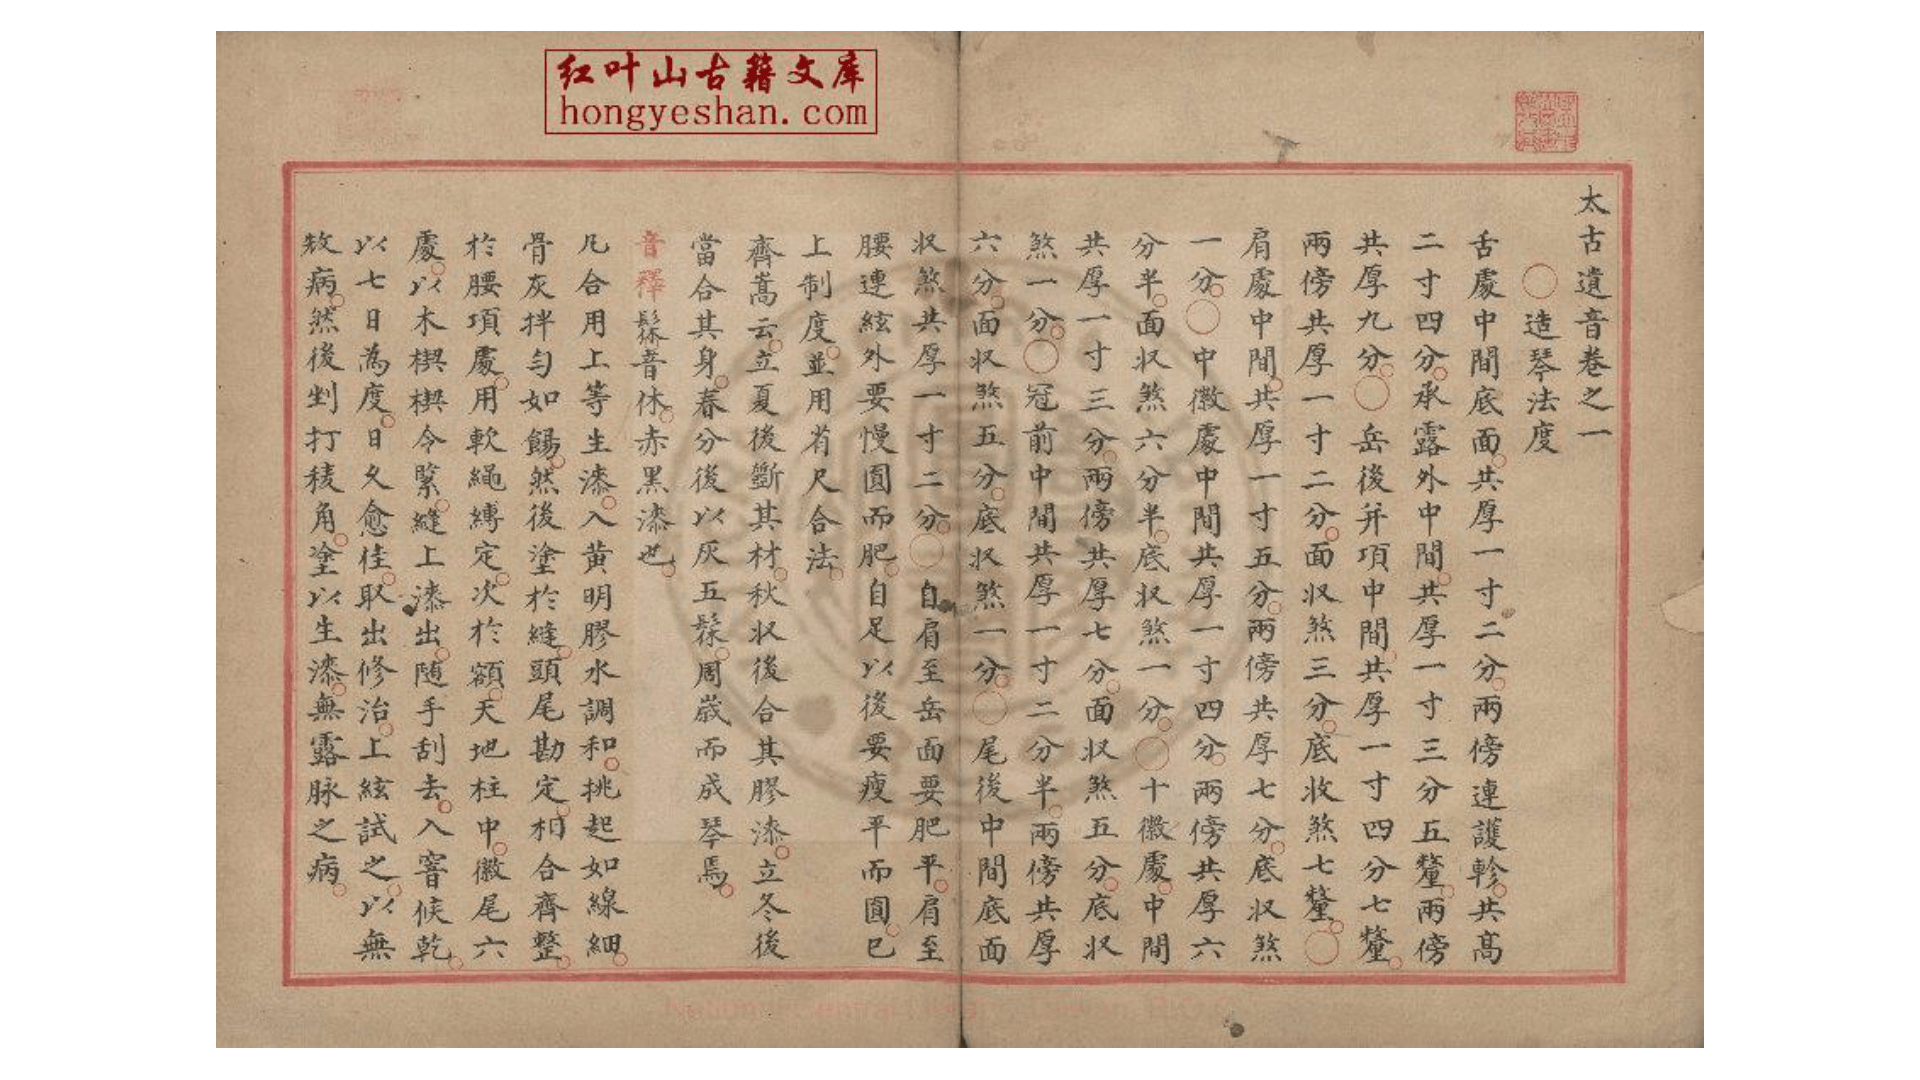 红叶山古籍文库
hongyeshan.com
太古遺音卷之一
〇造琴法度
舌處中間底面共厚一寸二分兩傍連護軫共高
二寸四分承露外中間共厚一寸三分五釐兩傍
共厚九分〇岳後并項中間共厚一寸四分七釐
兩傍共厚一寸二分面収煞三分底收煞七釐〇
肩處中間共厚一寸五分兩傍共厚七分底収煞
一分〇中徽處中間共厚一寸四分兩傍共厚六
分半面収煞六分半底収煞一分〇十徽處中間
共厚一寸三分兩傍共厚七分面収煞五分底収
煞一分〇冠前中間共厚一寸二分半兩傍共厚
六分面収煞五分底収煞一分〇尾後中間底面
収煞共厚一寸二分〇自肩至岳面要肥平肩至
腰連絃外要慢圓而肥自足以後要瘦平而圓已
上制度並用省尺合法
齊嵩云立夏後斷其材秋収後合其膠漆立冬後
當合其身春分後以灰五髹周歲而成琴焉
音釋髹音休赤黑漆也
凡合用上等生漆入黃明膠水調和挑起如線細
骨灰拌勻如餳然後塗於縫頭尾勘定相合齊整
於腰項處用軟繩縳定次於額天地柱中徽尾六
處以木楔楔令緊縫上漆出随手刮去入窨候乾
以七日為度日久愈佳取出修治上絃試之以無
敖病然後剉打稜角塗以生漆無露脉之病